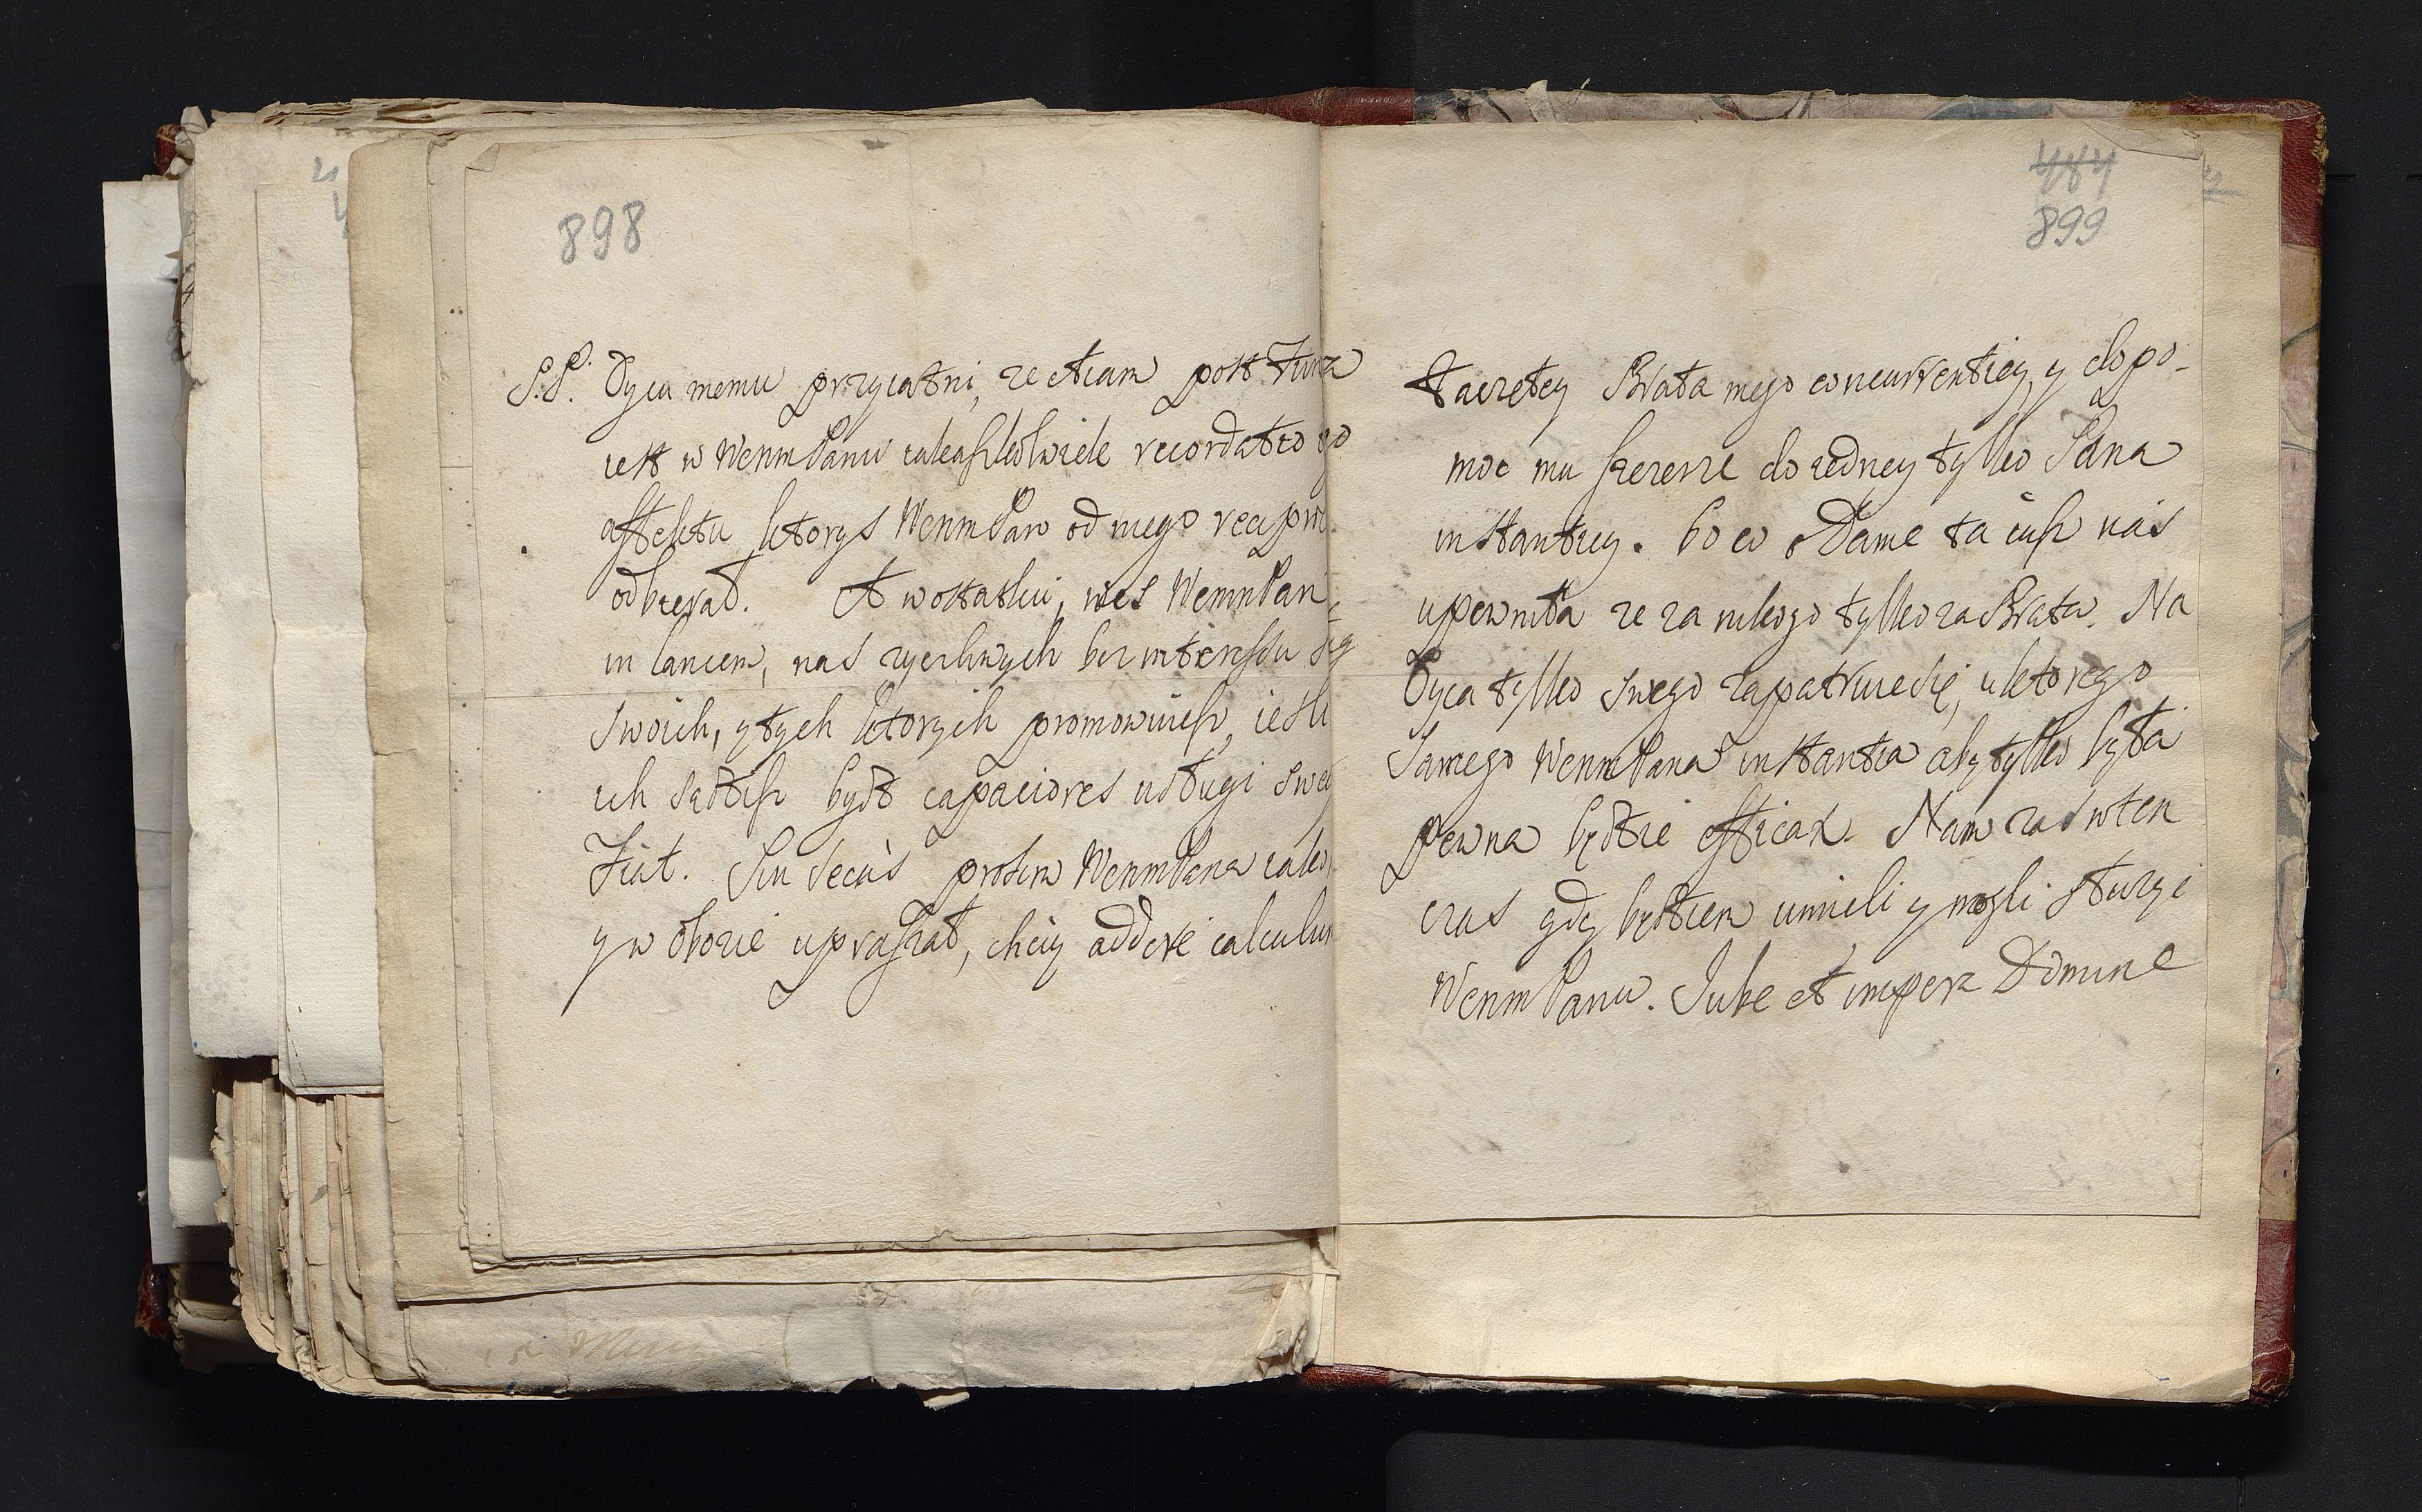 898
S.P. Oycu memu przyiaźni, ze etiam post funera
iest w WenmPanu recordatio
affektu ktorys WenmPan od niego
odbierał. A wostatku, wes WenmPan
in lancem, nas zyczliwych bez interessu
swoich, y tych ktorych promowuiesz, iesli
ich sądzisz bydź capaciores usługi swey
Fiat. Sin secus proszę WenmPana
y w obozie upraszał, chciey addere calculum
484
899
zaczętey Brata mego concurrentiey y dopo-
moc mu szczerze do iedney tylko Pana
instantiey. bo co Dame ta iusz nas
upewniła ze za nikogo tylko za Brata. Na
Oyca tylko swego zapatruie się, u ktorego
Samego WenmPana instantia aby tylko była
pewna będzie efficax. Nam zas wten
czas gdy będziem umieli y mogli służyć
WenmPanu. Iube et impera Domine